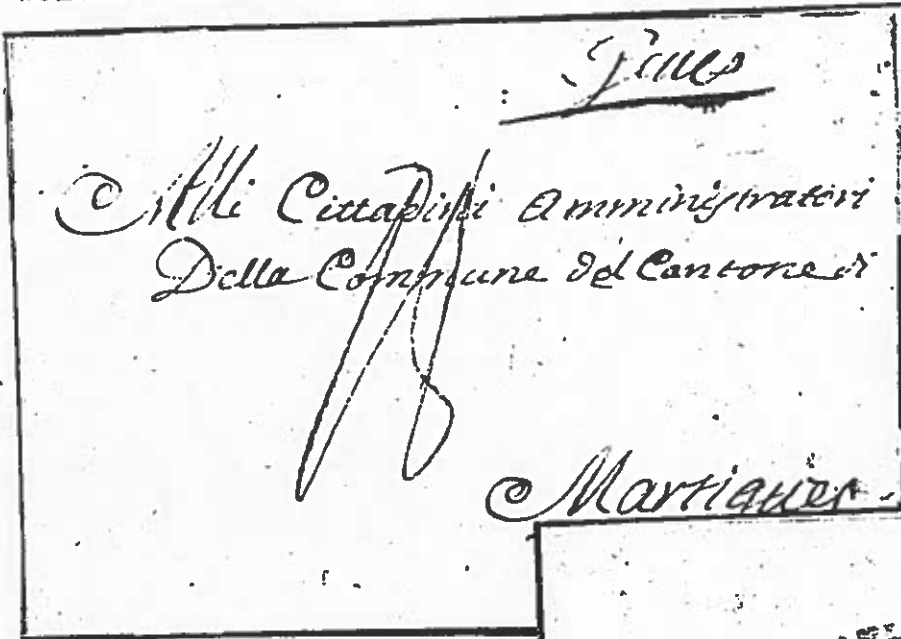 Alli Cittadini Amministratori
Della Commune del Cantone di
Martigues